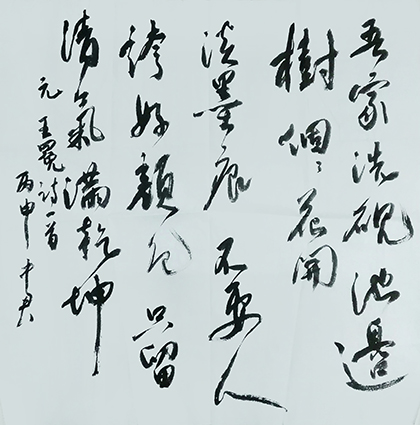 吾家洗硯池邊
樹個個花開
淡墨痕不要人
誇好顏色只留
清氣滿乾坤
元王冕詩一首
丙申